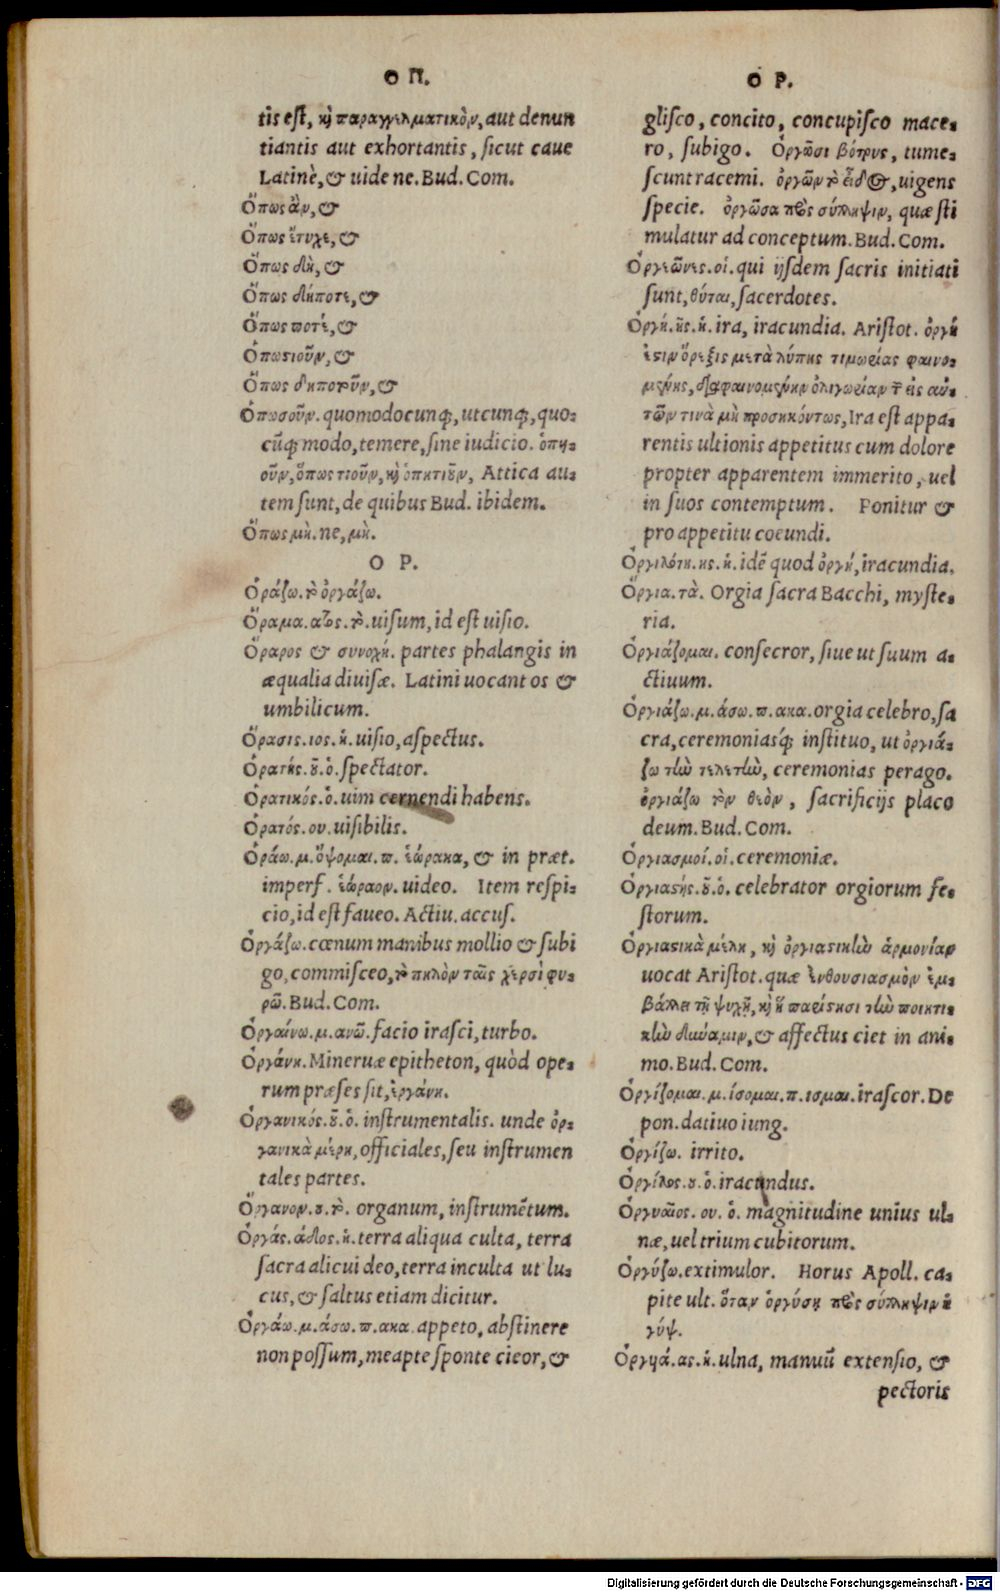 Ο Π.
tis eſt, κ̀ παραγγελματικὸν, aut denun
tiantis aut exhortantis, ſicut caue
Latinè, & uide ne. Bud. Com.
Ὅπως ἂν, &
Ὅπως ἔτυχε, &
Ὅπως δὴ, &
Ὅπως δήποτε, &
Ὅπως ποτὲ, &
Ὁπωστιοῦν, &
Ὅπως δηποτοῦν, &
Ὁπωσοῦν. quomodocunq;, utcunq;, quo-
cũq; modo, temere, ſine iudicio. ὁπη-
οῦν, ὅπως τιοῦν, κ̀ ὁπητιοῦν, Attica au-
tem ſunt, de quibus Bud. ibidem.
Ὅπως μὴ. ne, μὴ.
Ο Ρ.
Ὀράζω. τὸ ὀργάζω.
Ὅραμα. ατος. τὸ. uiſum, id eſt uiſio.
Ὅραρος & συνοχή. partes phalangis in
æqualia diuiſæ. Latini uocant os &
umbilicum.
Ὅρασις. ιος. ἡ. uiſio, aſpectus.
Ὁρατής. οῦ. ὁ. ſpectator.
Ὁρατικός. ὁ. uim cernendi habens.
Ὁρατός. ου. uiſibilis.
Ὁράω. μ. ὄψομαι. π. ἑώρακα, & in præt.
imperf. ἑώραον. uideo. Item reſpi-
cio, id eſt faueo. Actiu. accuſ.
Ὀργάζω. cœnum manibus mollio & ſubi
go, commiſceo, τὸ πηλὸν ταῖς χερσὶ φυ-
ρῶ. Bud. Com.
Ὀργαίνω. μ. ανῶ. facio iraſci, turbo.
Ὀργάνη. Mineruæ epitheton, quòd ope-
rum præſes ſit, ἐργάνη.
Ὀργανικός. οῦ. ὁ. inſtrumentalis. unde ὀρ-
γανικὰ μέρη, officiales, ſeu inſtrumen
tales partes.
Ὄργανον. ου. τὸ. organum, inſtrumẽtum.
Ὀργάς. άδος. ἡ. terra aliqua culta, terra
ſacra alicui deo, terra inculta ut lu-
cus, & ſaltus etiam dicitur.
Ὀργάω. μ. άσω. π. ακα. appeto, abſtinere
non poſſum, meapte ſponte cieor, &
Ο Ρ.
gliſco, concito, concupiſco mace-
ro, ſubigo. Ὀργῶσι βότρυς, tume-
ſcunt racemi. ὀργῶν τὸ εἶδος, uigens
ſpecie. ὀργῶσα πρὸς σύλληψιν, quæ ſti
mulatur ad conceptum. Bud. Com.
Ὀργεῶνες. οἱ. qui ijſdem ſacris initiati
ſunt, θύται, ſacerdotes.
Ὀργή. ῆς. ἡ. ira, iracundia. Ariſtot. ὀργή
ἐστιν ὄρεξις μετὰ λύπης τιμωρίας φαινο-
μένης, διὰ φαινομένην ὀλιγωρίαν τ̃ εἰς αὐ-
τῶν τινὰ μὴ προσηκόντως, Ira eſt appa-
rentis ultionis appetitus cum dolore
propter apparentem immerito, uel
in ſuos contemptum. Ponitur &
pro appetitu coeundi.
Ὀργιλότη. ης. ἡ. idẽ quod ὀργή, iracundia.
Ὄργια. τὰ. Orgia ſacra Bacchi, myſte-
ria.
Ὀργιάζομαι. conſecror, ſiue ut ſuum a-
ctiuum.
Ὀργιάζω. μ. άσω. π. ακα. orgia celebro, ſa
cra, ceremoniasq́; inſtituo, ut ὀργιά-
ζω τὴν τελετὴν, ceremonias perago.
ὀργιάζω τὸν θεὸν, ſacrificijs placo
deum. Bud. Com.
Ὀργιασμοί. οἱ. ceremoniæ.
Ὀργιαστής. οῦ. ὁ. celebrator orgiorum fe-
ſtorum.
Ὀργιαστικὰ μέλη, κ̀ ὀργιαστικὴν ἁρμονίαν
uocat Ariſtot. quæ ἐνθουσιασμὸν ἐμ-
βάλλει τῇ ψυχῇ, κ̀ ἣ παρίστησι τὴν ποιητι-
κὴν δύναμιν, & affectus ciet in ani-
mo. Bud. Com.
Ὀργίζομαι. μ. ίσομαι. π. ισμαι. iraſcor. De
pon. datiuo iung.
Ὀργίζω. irrito.
Ὀργίλος. ου. ὁ. iracundus.
Ὀργυαῖος. ου. ὁ. magnitudine unius ul-
næ, uel trium cubitorum.
Ὀργύζω. extimulor. Horus Apoll. ca-
pite ult. ὅταν ὀργύσῃ πρὸς σύλληψιν ἡ
γύψ.
Ὀργυιά. ας. ἡ. ulna, manuũ extenſio, &
pectoris
Digitalisierung gefördert durch die Deutsche Forschungsgemeinschaft - DFG